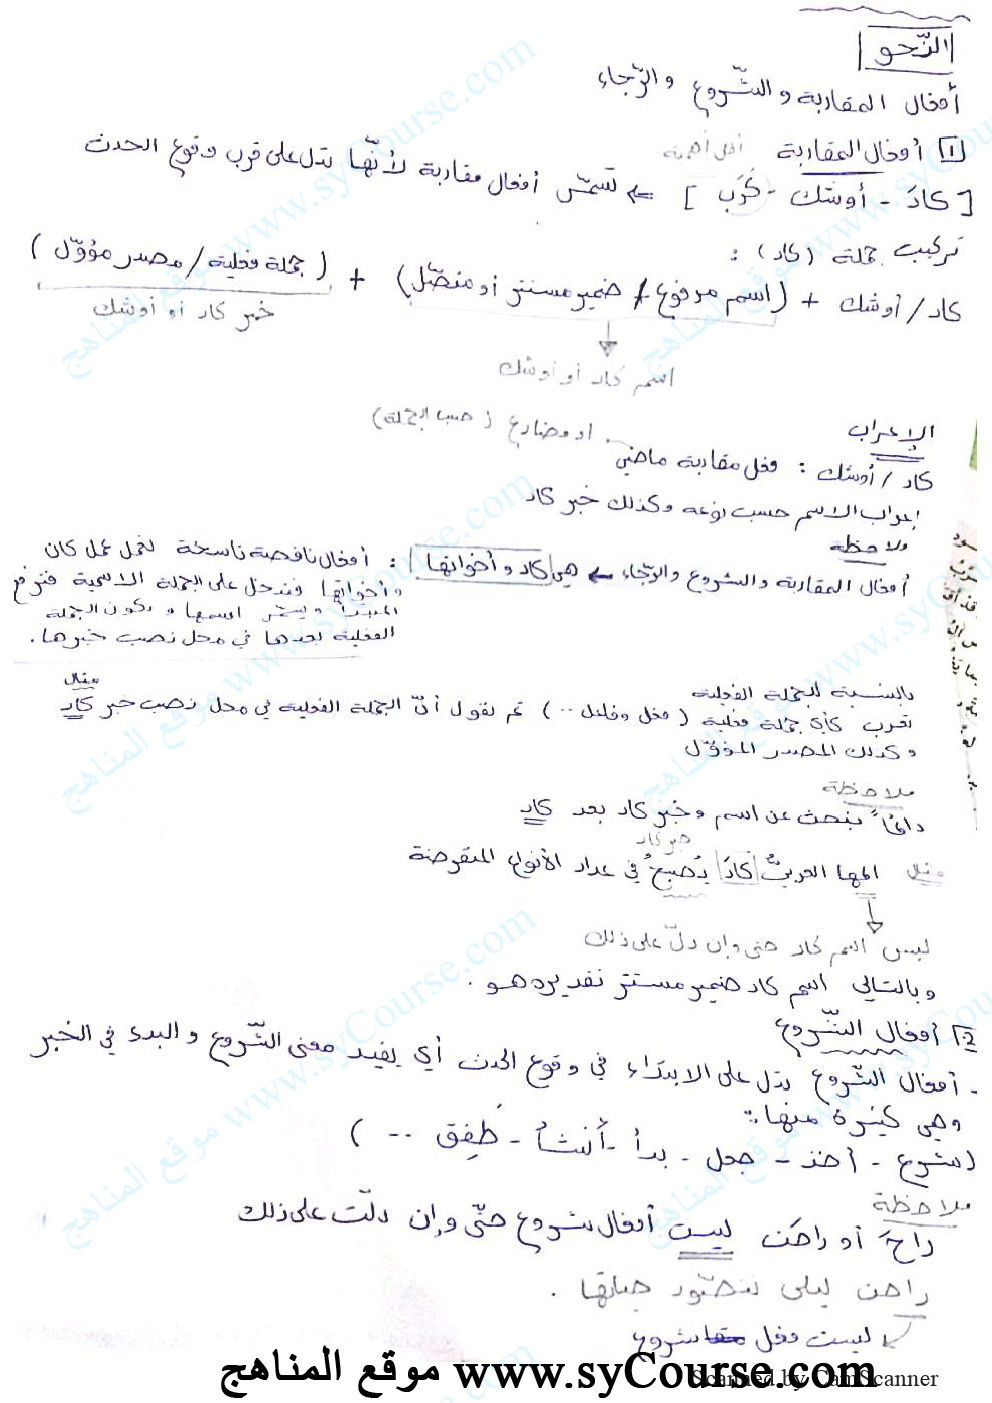 النّحو
أفعال المقاربة والشّروع والرّجاء
1 أفعال المقاربة أقل أهمية
[كادَ - أوشك - كَرَب] ⇐ تسمّى أفعال مقاربة لأنّها تدل على قرب وقوع الحدث
تركيب جملة (كاد) :
كاد / أوشك + (اسم مرفوع / ضمير مستتر أو متصّل) + (جملة فعلية / مصدر مؤوّل)
خبر كاد أو أوشك
اسم كاد أو أوشك
الإعراب
أو مضارع (حسب الجملة)
كاد / أوشك : فعل مقاربة ماضي
إعراب الاسم حسب نوعه وكذلك خبر كاد
ملاحظة
أفعال المقاربة والشروع والرّجاء ← هي كاد وأخواتها : أفعال ناقصة ناسخة تعمل عمل كان
وأخواتها فتدخل على الجملة الاسمية فترفع
المبتدأ ويسمى اسمها وتكون الجملة
الفعلية بعدها في محل نصب خبرها.
بالنسبة للجملة الفعلية
تعرب كأي جملة فعلية (فعل وفاعل ..) ثم نقول أنّ الجملة الفعلية في محل نصب خبر كاد
مثال
وكذلك المصدر المؤوّل
ملاحظة
دائماً نبحث عن اسم وخبر كاد بعد كاد
خبر كاد
مثال المها العربيُّ كادَ يُصبحُ في عداد الأنواع المنقرضة
ليس اسم كاد حتى وإن دلّ على ذلك
وبالتالي اسم كاد ضمير مستتر تقديره هو .
2 أفعال الشّروع
- أفعال الشّروع تدل على الابتداء في وقوع الحدث أي يفيد معنى الشّروع والبدء في الخبر
وهي كثيرة منها:
(شرع - أخذ - جعل - بدأ - أنشأ - طَفِق ..)
ملاحظة
راحَ أو راحَت ليست أفعال شروع حتّى وإن دلّت على ذلك
راحت ليلى تتصّور حياتها .
ليست فعل شروع
موقع المناهج www.syCourse.com
Scanned by CamScanner